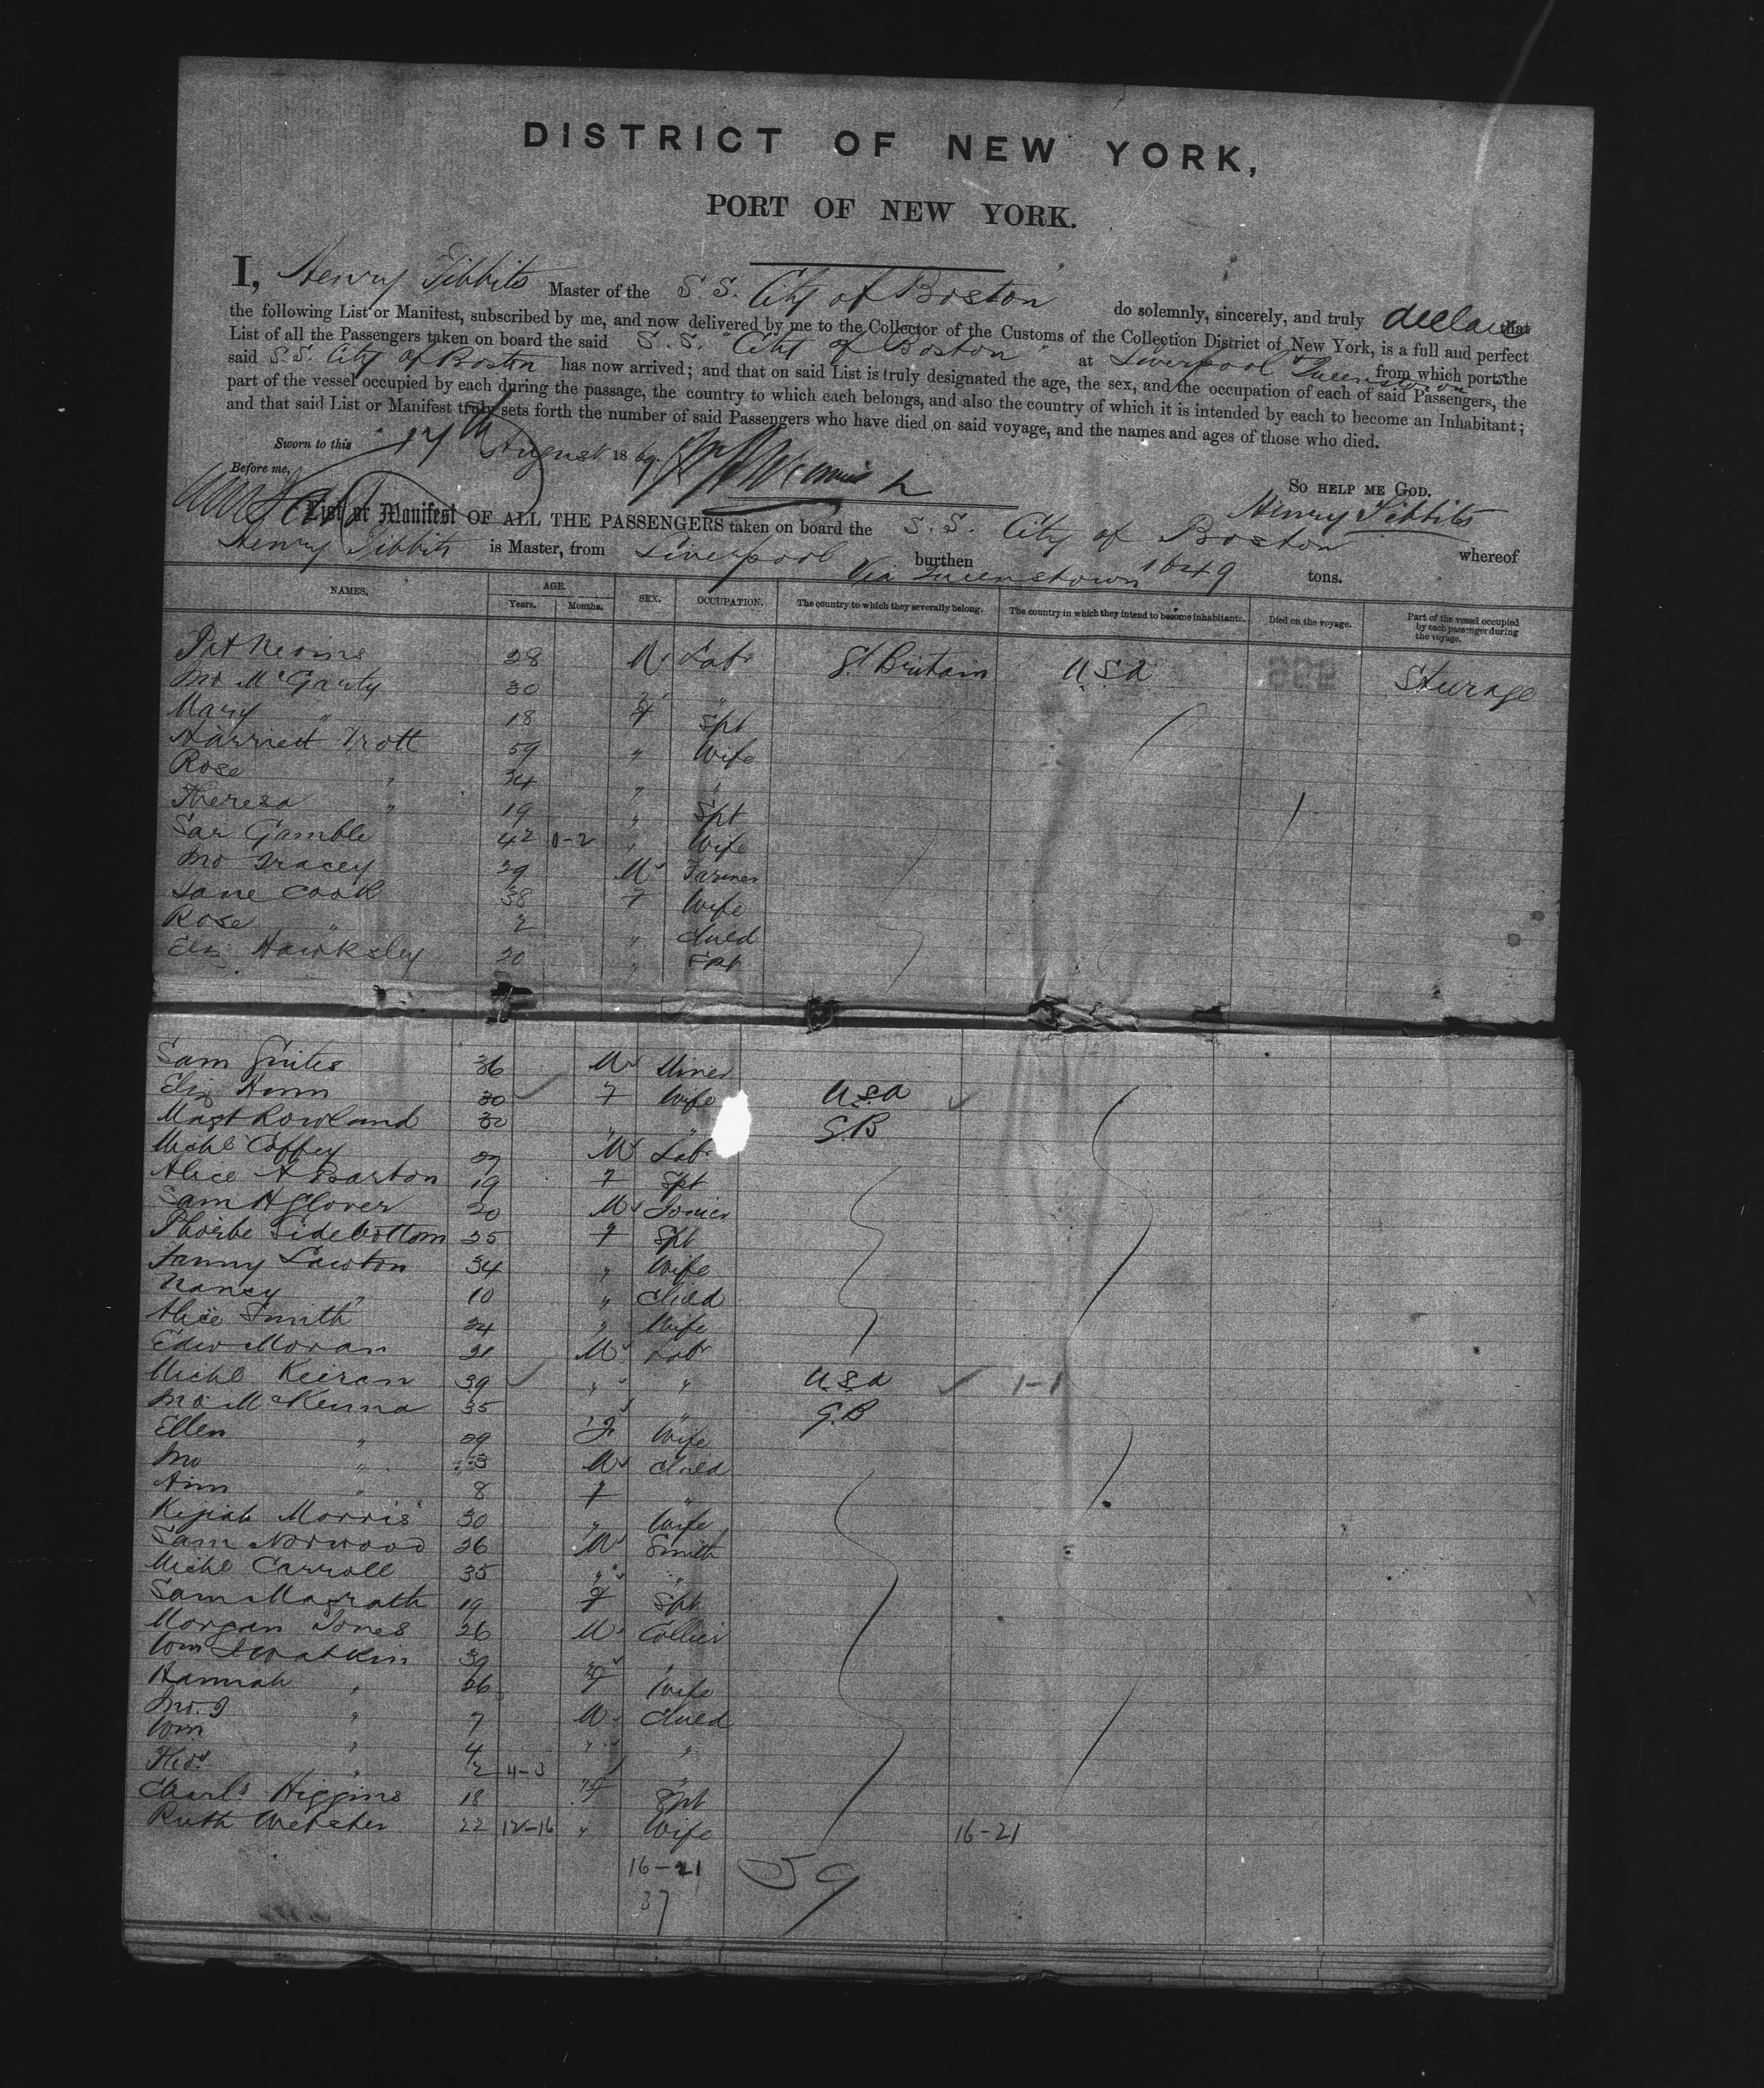 DISTRICT OF NEW YORK,
PORT OF NEW YORK.
I, Henry Tibbits Master of the S.S. City of Boston do solemnly, sincerely, and truly declare that
the following List or Manifest, subscribed by me, and now delivered by me to the Collector of the Customs of the Collection District of New York, is a full and perfect
List of all the Passengers taken on board the said S.S. "City of Boston" at Liverpool & Queenstown from which ports the
said S.S. City of Boston has now arrived; and that on said List is truly designated the age, the sex, and the occupation of each of said Passengers, the
part of the vessel occupied by each during the passage, the country to which each belongs, and also the country of which it is intended by each to become an Inhabitant;
and that said List or Manifest truly sets forth the number of said Passengers who have died on said voyage, and the names and ages of those who died.
Sworn to this 17th August 1869.
So help me God.
Before me,
Henry Tibbits
List or Manifest OF ALL THE PASSENGERS taken on board the S.S. City of Boston whereof
Henry Tibbits is Master, from Liverpool Via Queenstown burthen 1649 tons.
NAMES. AGE. Years. Months. SEX. OCCUPATION. The country to which they severally belong. The country in which they intend to become inhabitants. Died on the voyage. Part of the vessel occupied by each passenger during the voyage.
Pat 28 M Lab Gt. Britain USA Sturage
Jno McGarty 30 " "
Mary " 18 F Spt
Harriett Trott 59 " Wife
Rose " 34 " "
Theresa " 19 " Spt
Sar Gamble 42 0-2 " Wife
Jno Tracey 29 M Farmer
Jane Cook 38 F Wife
Rose " 2 " Child
Eliz Hawksley 20 " Spt
Sam 36 M Miner
Eliz Hann 30 F Wife USA
Magt Rowland 30 " " G.B
Michl Coffey M Lab
Alice A Barton 19 F Spt
Sam H Glover 20 M Joiner
Phoebe Sidebottom 25 F Spt
Fanny Lawton 34 " Wife
Nancy " 10 " Child
Alice Smith 24 " Wife
Edw Moran 21 M Lab
Michl Keiran 39 " " USA 1-1
Jno McKenna 35 " " G.B
Ellen " 29 F Wife
Jno " 3 M Child
Ann " 8 F "
Keziah Morris 30 " Wife
Sam Norwood 26 M Smith
Michl Carroll 35 " "
Sam Magrath 19 F Spt
Morgan Jones 26 M Collier
Wm Watkin 39 " "
Hannah " 26 F Wife
Jno. J " 7 M Child
Wm " 4 " "
Thos " 2 4-3 " "
Charls Higgins 18 F Spt
Ruth Webster 22 12-16 " Wife 16-21
16-21 59
37